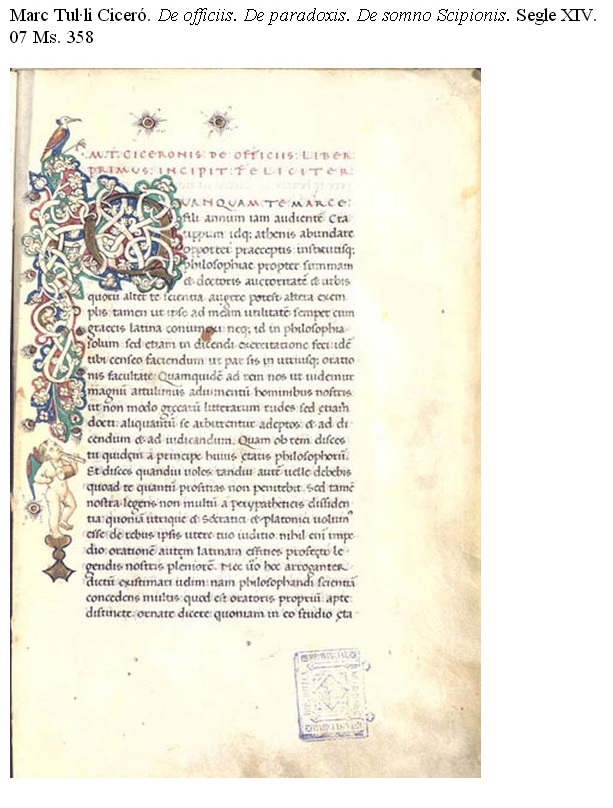 Marc Tul·li Ciceró. De officiis. De paradoxis. De somno Scipionis. Segle XIV.
07 Ms. 358
M. T. CICERONIS: DE OFFICIIS: LIBER:
PRIMUS: INCIPIT: FELICITER:
QUANQUAM TE MARCE:
fili annum iam audientē Cra
tippum idq; athenis abundare
oportet praeceptis institutisq;
philosophiae propter summam
& doctoris auctoritatē & urbis
quorū alter te scientia augere potest altera exem
plis: tamen ut ipse ad meam utilitatē semper cum
graecis latina coniunxi neq; id in philosophia
solum: sed etiam in dicendi exercitatione feci idē
tibi censeo faciendum ut par sis in utriusq; oratio
nis facultate. Quamquidē ad rem nos ut uidemur
magnū attulimus adiumentū hominibus nostris:
ut non modo grecarū litterarum rudes sed etiam
docti aliquantū se arbitrentur adeptos & ad di
cendum & ad iudicandum. Quam ob rem disces
tu quidem a principe huius etatis philosophorū
Et disces quandiu uoles: tandiu autē uelle debebis
quoad te quantū proficias non penitebit. Sed tamē
nostra legens non multū a perypatheticis dissiden
tia quoniā utrique & Socratici & platonici
esse: de rebus ipsis utere tuo iuditio: nihil enī impe
dio: orationē autem latinam efficies profecto le
gendis nostris pleniorē. Nec uō hoc arroganter
dictū existimari uelim: nam philosophandi scientiā
concedens multis: quod est oratoris propriū apte
distincte: ornate dicere: quoniam in eo studio eta